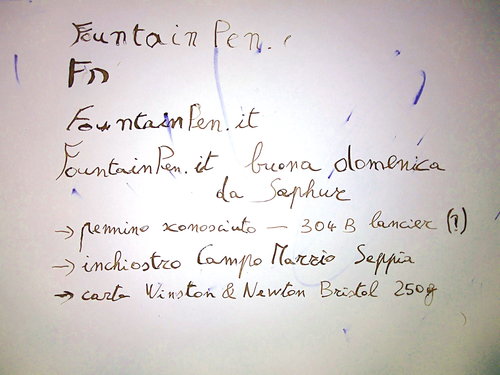 Fountain Pen.
Fn
FountainPen.it
FountainPen.it buona domenica
da Saphur
→ pennino sconosciuto – 304 B lancier (?)
→ inchiostro Campo Marzio Seppia
→ carta Winston & Newton Bristol 250g